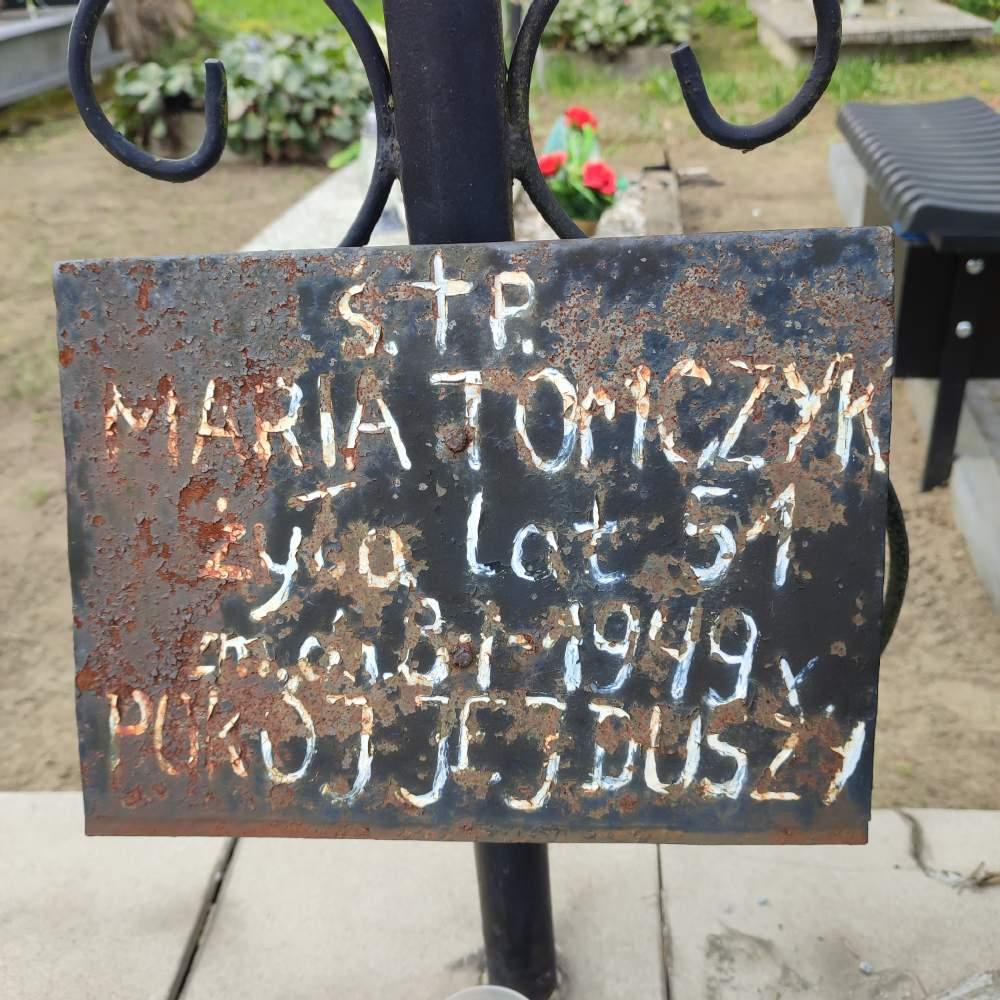 Ś.†P.
MARIA TOMCZYK
żyła lat 51
zm. dn. 8-1-1949 r.
POKÓJ JEJ DUSZY